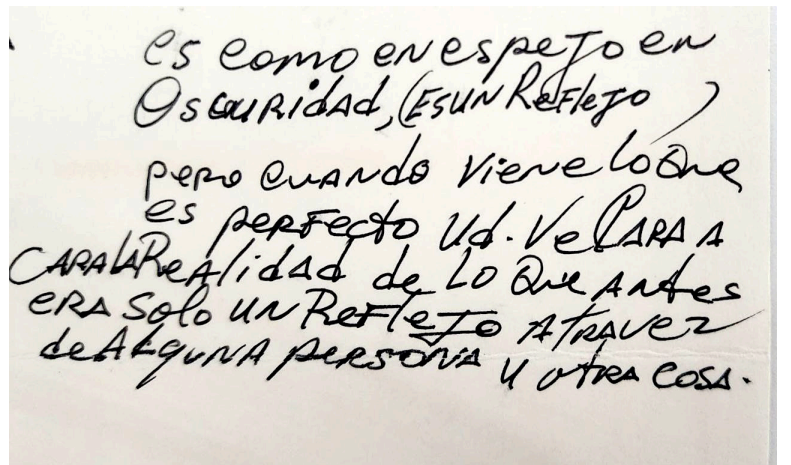 es como en espejo en
Oscuridad, (Es un Reflejo )
pero cuando viene lo que
es perfecto Ud. ve cara a
cara la Realidad de lo que antes
era solo un Reflejo atravez
de alguna persona u otra cosa.